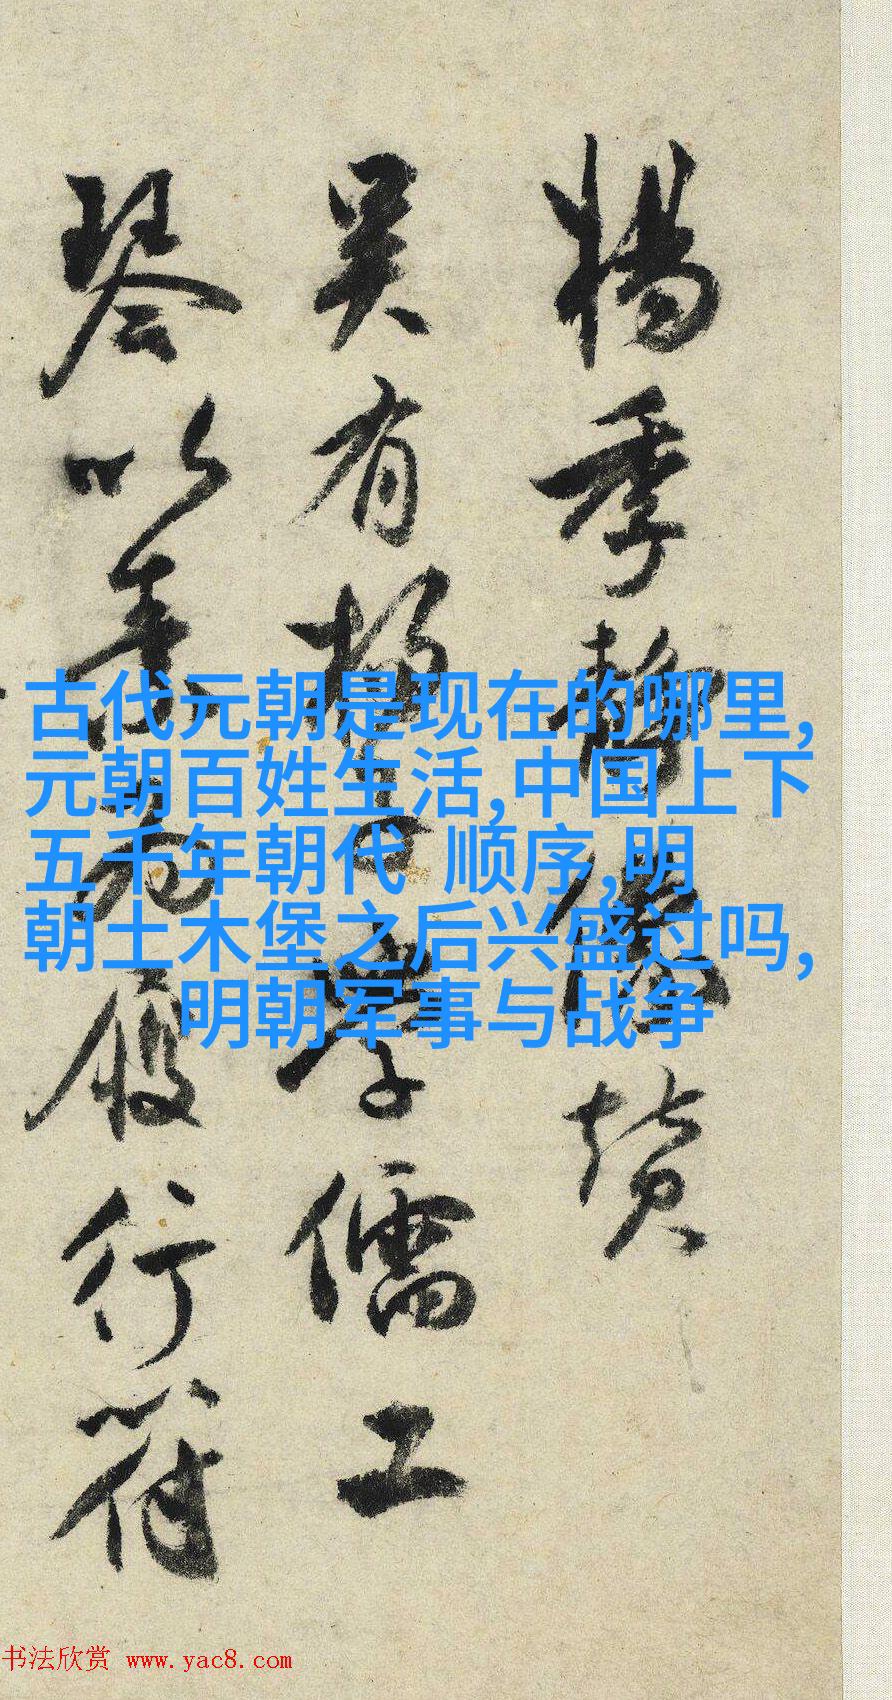 楊季靜像贊
吴有楊子學儒工
琴以其為履行符
古代元朝是现在的哪里,
元朝百姓生活,中国上下
五千年朝代 顺序,明
朝土木堡之后兴盛过吗,
明朝军事与战争
书法欣赏 www.yac8.com